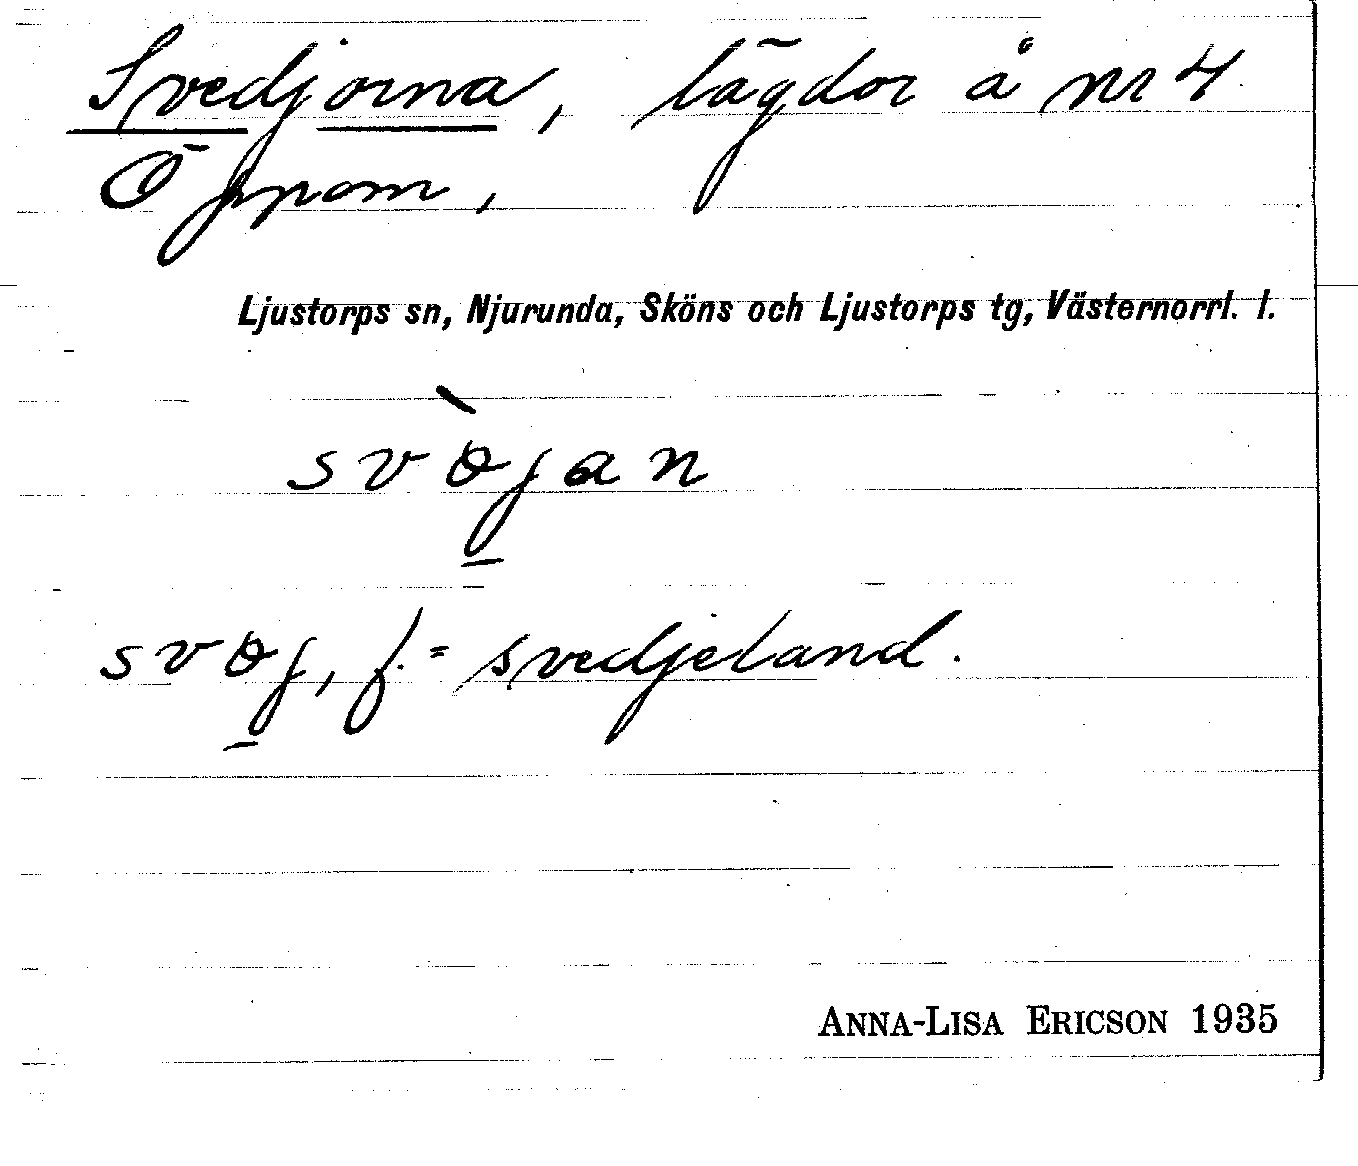 Svedjorna, lägdor å nr 4
Öppom,
Ljustorps sn, Njurunda, Sköns och Ljustorps tg, Västernorrl. l.
svɵ̀jan
svɵj, f. = svedjeland.
ANNA-LISA ERICSON 1935